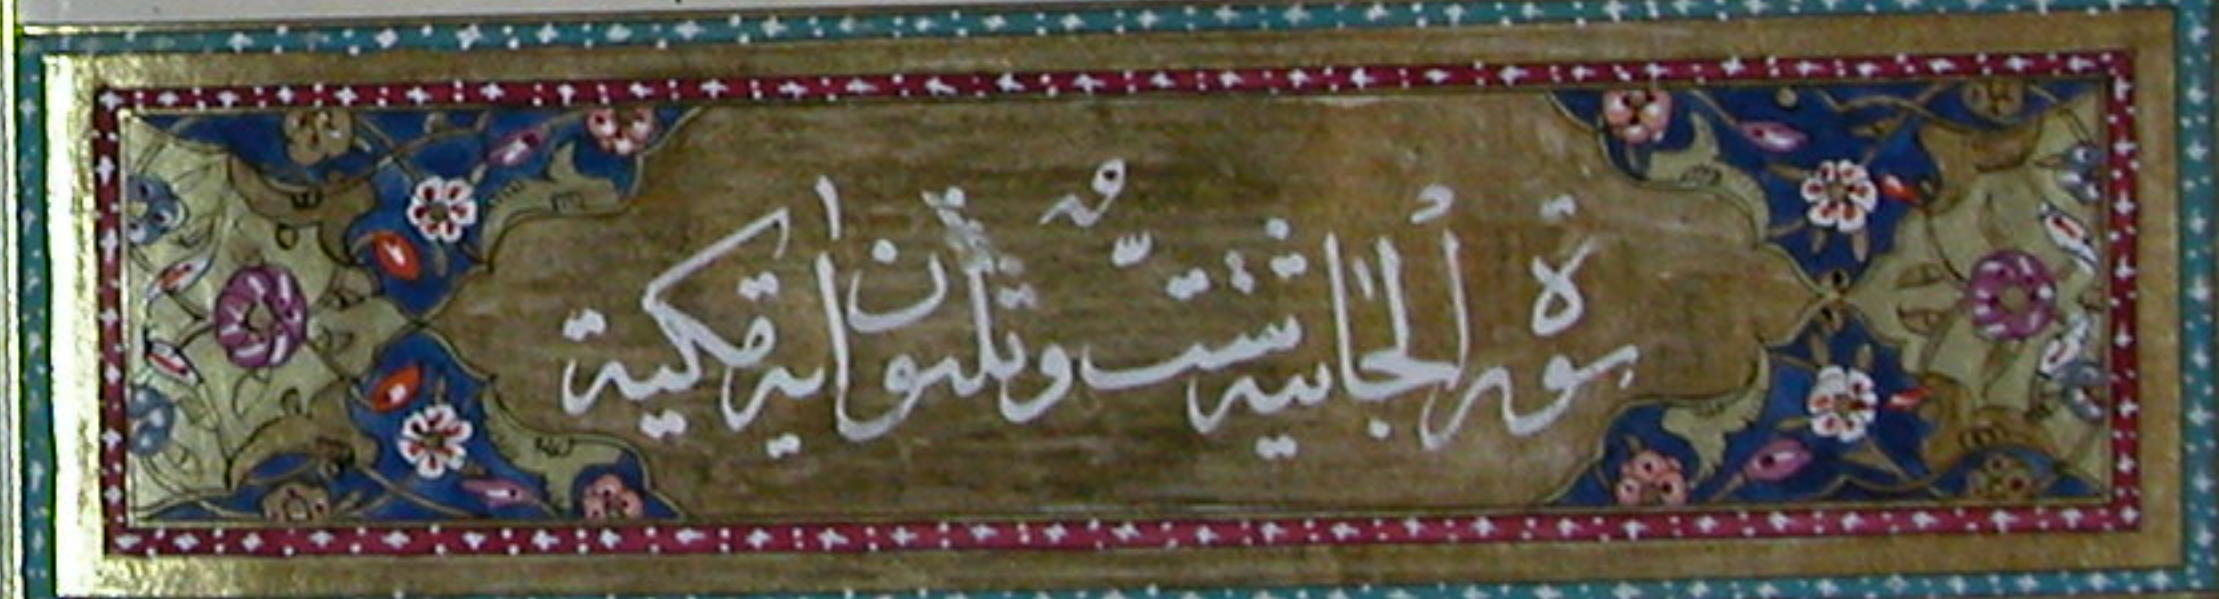 سورة الجاثية ست وثلثون اية مكية